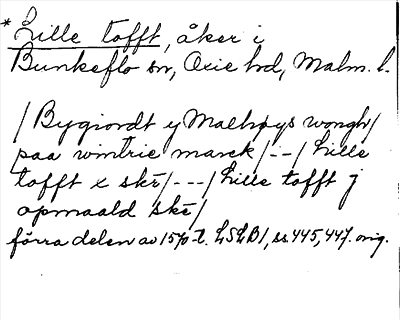 * Lille tofft, åker i
Bunkeflo sn, Oxie hd, Malm. l.
/Bygiordt y Malhøys wongh/
paa wintrie marck/--/Lille
tofft x skē/---/Lille tofft j
opmaald skē/
förra delen av 1570-t. LSLB1, ss 445, 447. orig.